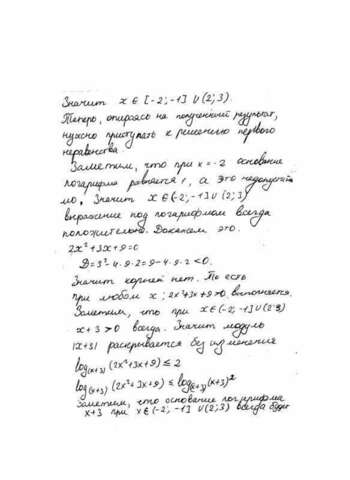 Значит x ∈ [-2; -1] ∪ (2; 3).
Теперь, опираясь на полученный результат,
нужно приступать к решению первого
неравенства.
Заметим, что при x = -2 основание
логарифма равняется 1, а это недопусти
мо. Значит x ∈ (-2; -1] ∪ (2; 3)
выражение под логарифмом всегда
положительно. Докажем это.
2x² + 3x + 9 = 0
D = 3² - 4·9·2 = 9 - 4·9·2 < 0.
Значит корней нет. То есть
при любом x : 2x² + 3x + 9 > 0 выполняется.
Заметим, что при x ∈ (-2; -1] ∪ (2; 3)
x + 3 > 0 всегда. Значит модуль
|x + 3| раскрывается без изменение
log₍ₓ₊₃₎ (2x² + 3x + 9) ≤ 2
log₍ₓ₊₃₎ (2x² + 3x + 9) ≤ log₍ₓ₊₃₎ (x + 3)²
Заметим, что основание логарифма
x + 3 при x ∈ (-2; -1] ∪ (2; 3) всегда будет